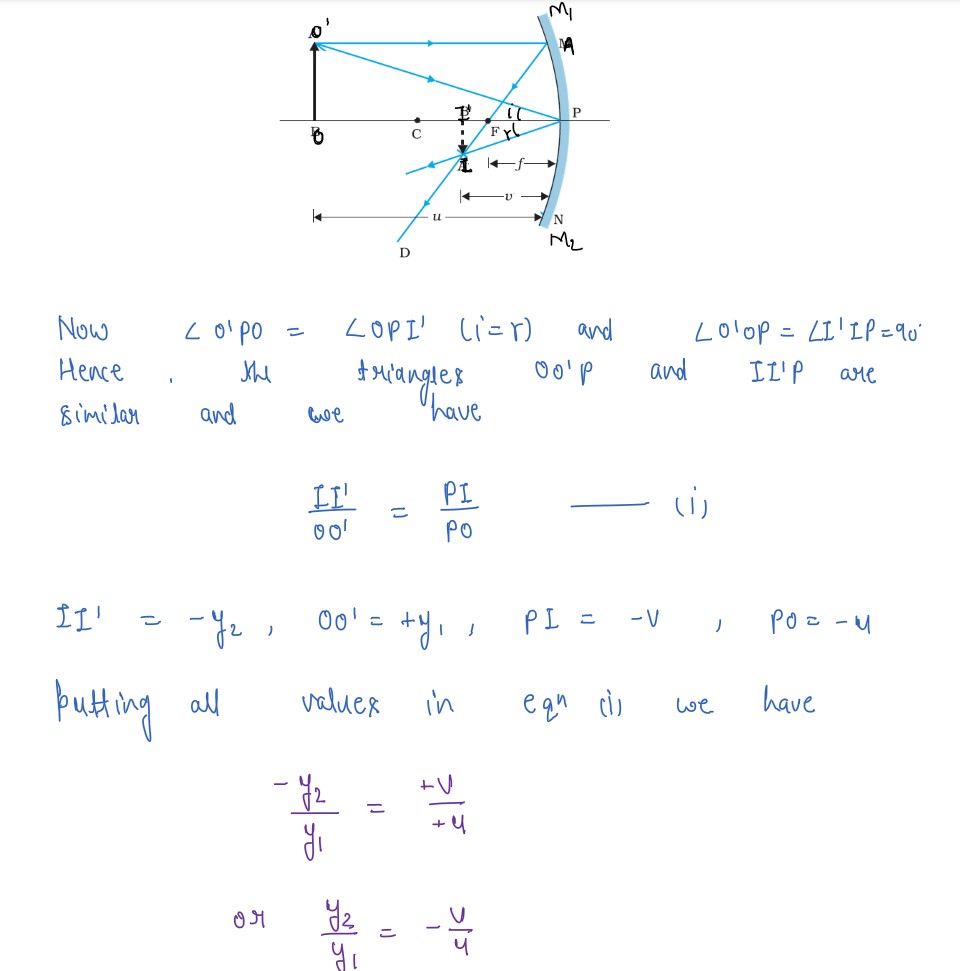 M₁
O'
A
I' i
O C F r P
I f
v
u N
M₂
D
Now ∠O'PO = ∠OPI' (i=r) and ∠O'OP = ∠I'IP=90°
Hence , the triangles OO'P and II'P are
similar and we have
II'/OO' = PI/PO —— (i)
II' = -y₂ , OO' = +y₁ , PI = -v , PO = -u
putting all values in eqn (i) we have
-y₂/y₁ = +v/+u
or y₂/y₁ = -v/u